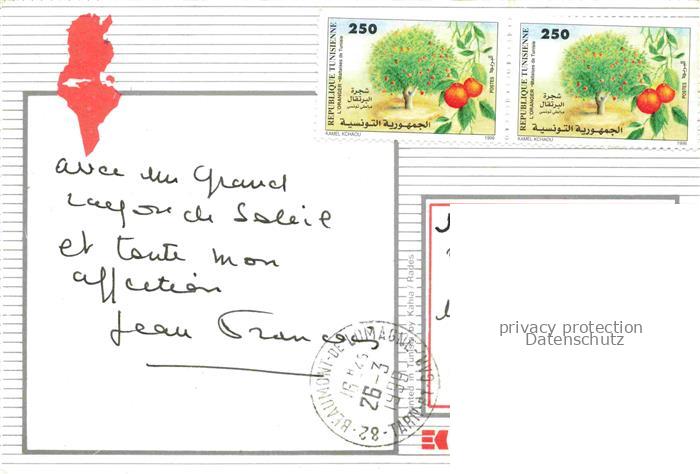 REPUBLIQUE TUNISIENNE
250
L'ORANGER - Maltaises de Tunisie
شجرة
البرتقال
مالطي تونسي
البريد POSTES
الجمهورية التونسية
KAMEL KCHAOU 1996
REPUBLIQUE TUNISIENNE
250
L'ORANGER - Maltaises de Tunisie
شجرة
البرتقال
مالطي تونسي
البريد POSTES
الجمهورية التونسية
KAMEL KCHAOU 1996
avec un grand
rayon de Soleil
et toute mon
affection
Jean François
82 - BEAUMONT-DE-LOMAGNE TARN-ET-GAR.
16 H 45
26-3
Printed in Tunisia by Kahia / Rades
privacy protection
Datenschutz